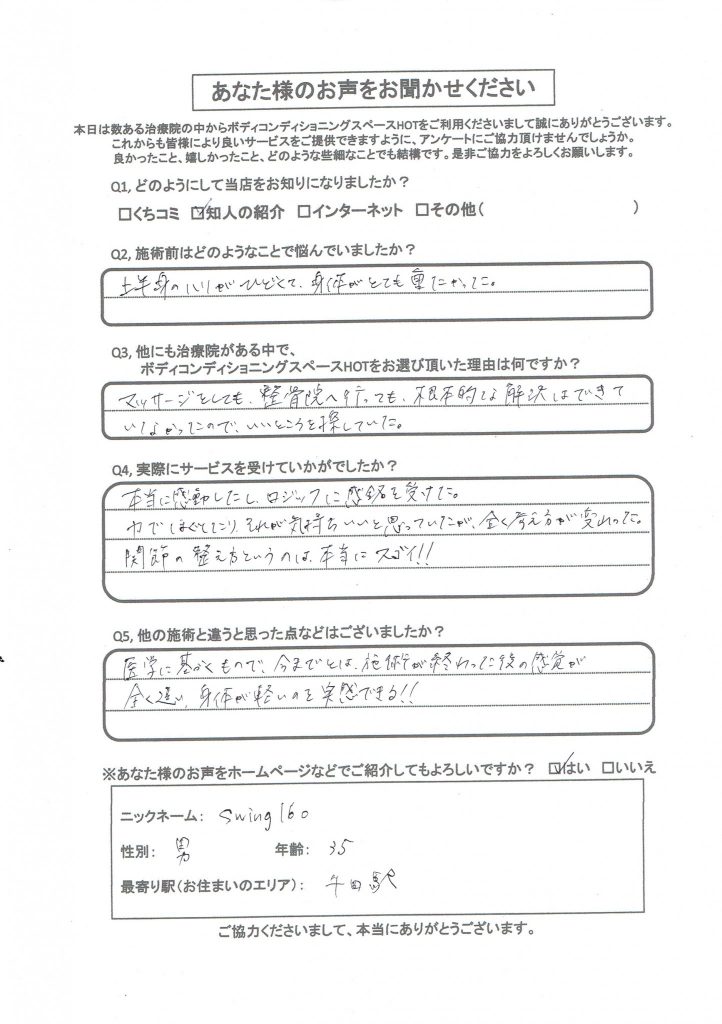 あなた様のお声をお聞かせください
本日は数ある治療院の中からボディコンディショニングスペースHOTをご利用くださいまして誠にありがとうございます。
これからも皆様により良いサービスをご提供できますように、アンケートにご協力頂けませんでしょうか。
良かったこと、嬉しかったこと、どのような些細なことでも結構です。是非ご協力をよろしくお願いします。
Q1, どのようにして当店をお知りになりましたか？
□くちコミ ☑知人の紹介 □インターネット □その他( )
Q2, 施術前はどのようなことで悩んでいましたか？
上半身のハリがひどくて、身体がとても重たかった。
Q3, 他にも治療院がある中で、
ボディコンディショニングスペースHOTをお選び頂いた理由は何ですか？
マッサージをしても、整骨院へ行っても、根本的な解決はできて
いなかったので、いいところを探していた。
Q4, 実際にサービスを受けていかがでしたか？
本当に感動したし、ロジックに感銘を受けた。
力でほぐしたり、それが気持ちいいと思っていたが、全く考え方が変わった。
関節の整え方というのは、本当にスゴイ!!
Q5, 他の施術と違うと思った点などはございましたか？
医学に基づくもので、今までとは、施術が終わった後の感覚が
全く違い、身体が軽いのを実感できる!!
※あなた様のお声をホームページなどでご紹介してもよろしいですか？ ☑はい □いいえ
ニックネーム： Swing160
性別： 男 年齢： 35
最寄り駅(お住まいのエリア)： 牛田駅
ご協力くださいまして、本当にありがとうございます。